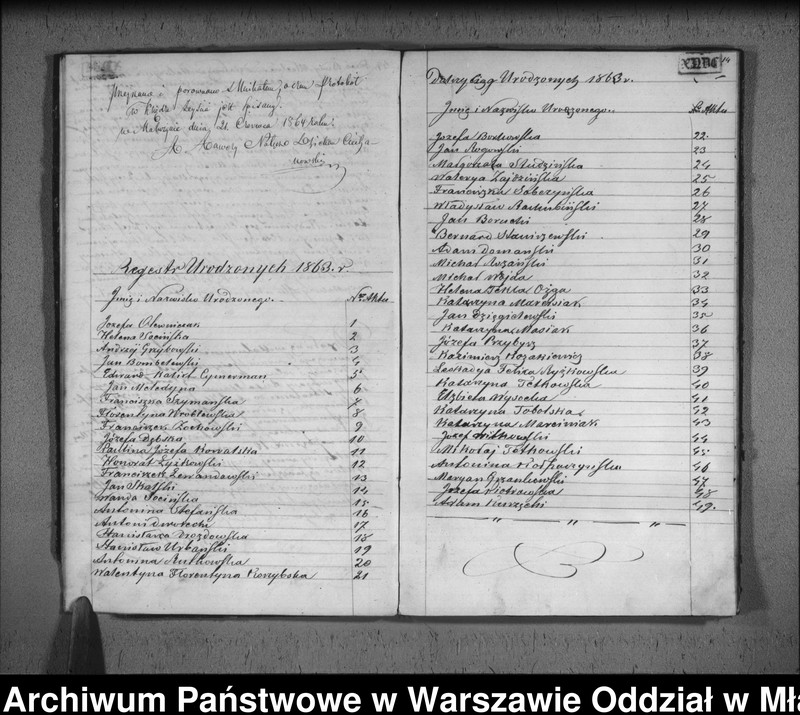 i porownano z Unikatem, o czem Protokół
w Księdze jest spisany.
w dnia 21 Czerwca 1864 Roku.
Regestr Urodzonych 1863. r
Jmię i Nazwisko Urodzonego. Nr. Aktu
Józefa Olewniczak 1
Helena Socińska 2
Andrzej Grzybowski 3
Jan 4
Edward Karol Cymerman 5
Jan 6
Franciszka Szymańska 7
Florentyna Wróblewska 8
Franciszek Żochowski 9
Józefa Dębska 10
Paulina Józefa Horvatska 11
Honorat Łyżkowski 12
Franciszek Lewandowski 13
Jan Skalski 14
Wanda Socińska 15
Antonina Stefańska 16
Antoni 17
Stanisława Drozdowska 18
Stanisław Urbański 19
Antonina Rutkowska 20
Walentyna Florentyna Korzybska 21
Dalszy Ciąg Urodzonych 1863. r. 14
Jmię i Nazwisko Urodzonego. Nr. Aktu
Józefa Borkowska 22
Jan Rogowski 23
Małgorzata Rudzińska 24
Walerya Zajdzińska 25
Franciszka Sobczyńska 26
Władysław 27
Jan Borucki 28
Bernard Staniszewski 29
Adam Domański 30
Michał Rożański 31
Michał Wojda 32
Helena Tekla Oyza 33
Katarzyna Marciniak 34
Jan Dzięgielewski 35
Katarzyna Masiak 36
Józefa Przybysz 37
Kazimierz Kozakiewicz 38
Leokadya Felixa Ryżkowska 39
Katarzyna Tetkowska 40
Elżbieta Wysocka 41
Katarzyna Sobolska 42
Katarzyna Marciniak 43
Józef Witkowski 44
Mikołaj Tetkowski 45
Antonina 46
Maryan 47
Józefa Piotrowska 48
Adam Kurzycki 49.
Archiwum Państwowe w Warszawie Oddział w Mł